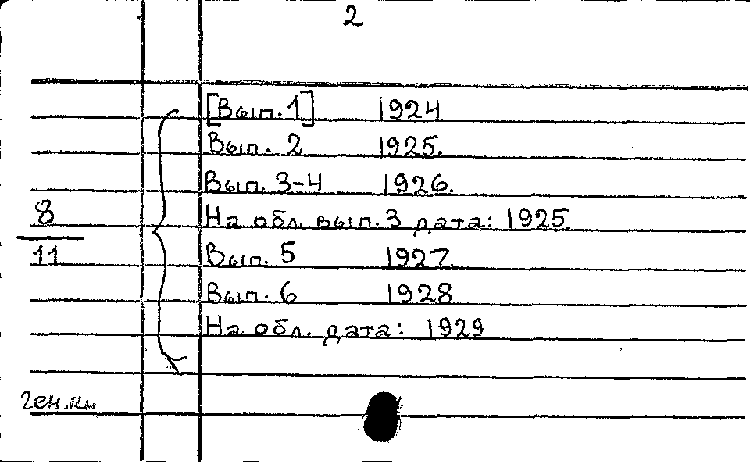 2
[Вып. 1] 1924
Вып. 2 1925.
Вып. 3-4 1926.
8
На обл. вып. 3 дата: 1925.
11
Вып. 5 1927.
Вып. 6 1928
На обл. дата: 1929